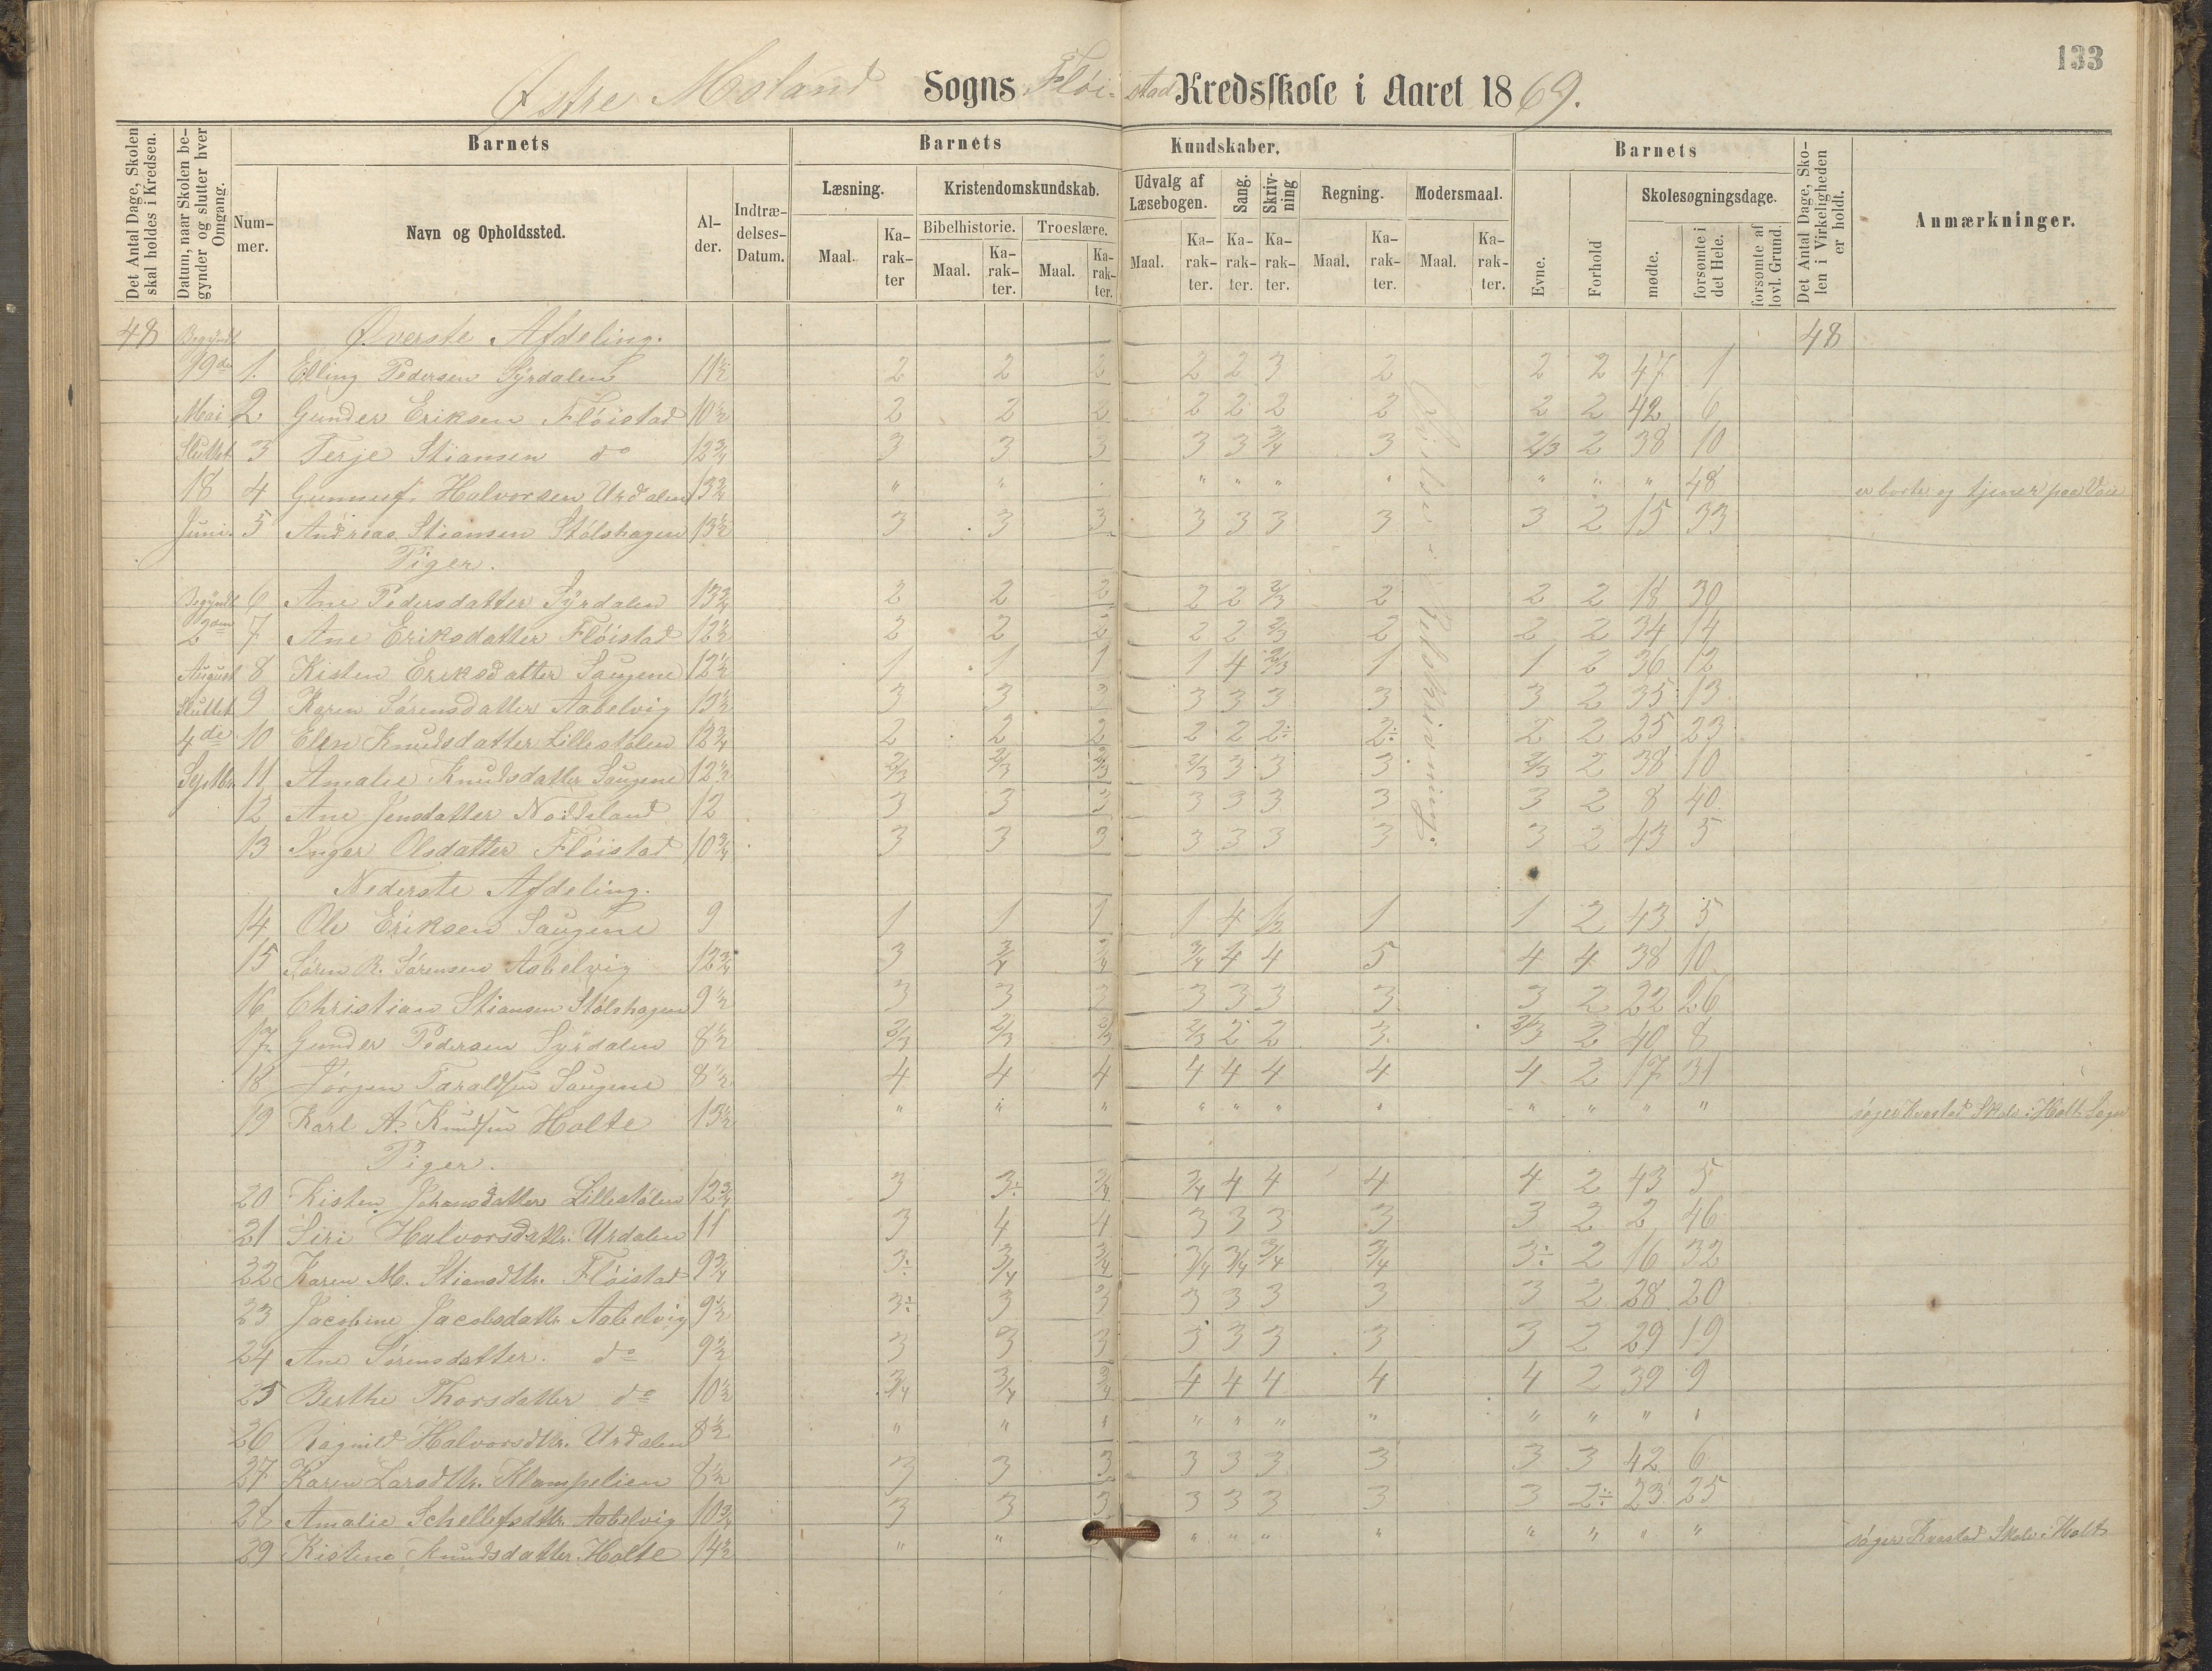 133
Østre Moland Sogns Fløistad Kredsskole i Aaret 1869.
Det Antal Dage, Skolen skal holdes i Kredsen.
Datum, naar Skolen begynder og slutter hver Omgang.
Barnets
Nummer.
Navn og Opholdssted.
Alder.
Indtrædelses-Datum.
Barnets Kundskaber.
Læsning.
Maal. Karakter
Kristendomskundskab.
Bibelhistorie. Troeslære.
Maal. Karakter. Maal. Karakter.
Udvalg af Læsebogen.
Maal. Karakter.
Sang. Karakter.
Skrivning Karakter.
Regning.
Maal. Karakter.
Modersmaal.
Maal. Karakter.
Barnets
Evne. Forhold
Skolesøgningsdage.
mødte. forsømte i det Hele. forsømte af lovl. Grund.
Det Antal Dage, Skolen i Virkeligheden er holdt.
Anmærkninger.
48 Begyndt Øverste Afdeling. 48
19de 1. Elling Pedersen Syrdalen 11½ 2 2 2 2 2 3 2 2 2 47 1
Mai 2 Gunder Eriksen Fløistad 10½ 2 2 2 2 2 2 2 2 2 42 6
Sluttet 3 Terje Stiansen do 12¾ 3 3 3 3 3 3/4 3 2/3 2 38 10
18 4 Halvorsen Urdalen 13¾ " " " " " " " " " " 48 er borte og tjener paa
Juni 5 Andreas Stiansen Stølshagen 13½ 3 3 3 3 3 3 3 3 2 15 33
Piger.
Begyndt 6 Ane Pedersdatter Syrdalen 13¾ 2 2 2 2 2 2/3 2 2 2 18 30
2den 7 Ane Eriksdatter Fløistad 12½ 2 2 2 2 2 2/3 2 2 2 34 14
August 8 Kisten Eriksdatter Saugene 12½ 1 1 1 1 4 2/3 1 1 2 36 12
Sluttet 9 Karen Sørensdatter Aabelvig 13½ 3 3 3 3 3 3 3 3 2 35 13
4de 10 Elen Knudsdatter Lillestølen 12¾ 2 2 2 2 2 2÷ 2÷ 2 2 25 23
Septbr. 11 Amalie Knudsdatter Saugene 12½ 2/3 2/3 2/3 2/3 3 3 3 2/3 2 38 10
12 Ane Jensdatter Noddeland 12 3 3 3 3 3 3 3 3 2 8 40
13 Inger Olsdatter Fløistad 10¾ 3 3 3 3 3 3 3 3 2 43 5
Nederste Afdeling.
14 Ole Eriksen Saugene 9 1 1 1 1 4 1/2 1 1 2 43 5
15 Søren R. Sørensen Aabelvig 12¾ 3 3/4 3/4 3/4 4 4 5 4 4 38 10
16 Christian Stiansen Stølshagen 9½ 3 3 3 3 3 3 3 2 22 26
17 Gunder Pedersen Syrdalen 8½ 2/3 2/3 2/3 2/3 2 2 3 2/3 2 40 8
18 Jørgen Taraldsen Saugene 8½ 4 4 4 4 4 4 4 4 2 17 31
19 Karl A. Knudsen Holte 13½ " " " " " " " " " " " søger Kvastad Skole i Holt Sogn
Piger.
20 Kisten Johansdatter Lillestølen 12¾ 3 3÷ 3/4 3/4 4 4 4 4 2 43 5
21 Siri Halvorsdattr. Urdalen 11 3 4 4 3 3 3 3 3 2 2 46
22 Karen M. Stiansdttr. Fløistad 9¾ 3÷ 3/4 3/4 3/4 3/4 3/4 3/4 3÷ 2 16 32
23 Jacobine Jacobsdattr. Aabelvig 9½ 3÷ 3 3 3 3 3 3 3 2 28 20
24 Ane Sørensdatter. do 9½ 3 3 3 3 3 3 3 3 2 29 19
25 Berthe Thorsdatter do 10½ 3/4 3/4 3/4 4 4 4 4 4 2 39 9
26 Ragnild Halvorsdttr. Urdalen 8½ " " " " " " " " " " "
27 Karen Larsdttr. Klampelien 8½ 3 3 3 3 3 3 3 3 3 42 6
28 Amalie Schellefsdttr. Aabelvig 10¾ 3 3 3 3 3 3 3 3 2÷ 23 25
29 Kistine Knudsdatter Holte 14½ " " " " " " " " " " søger Kvastad Skole i Holt